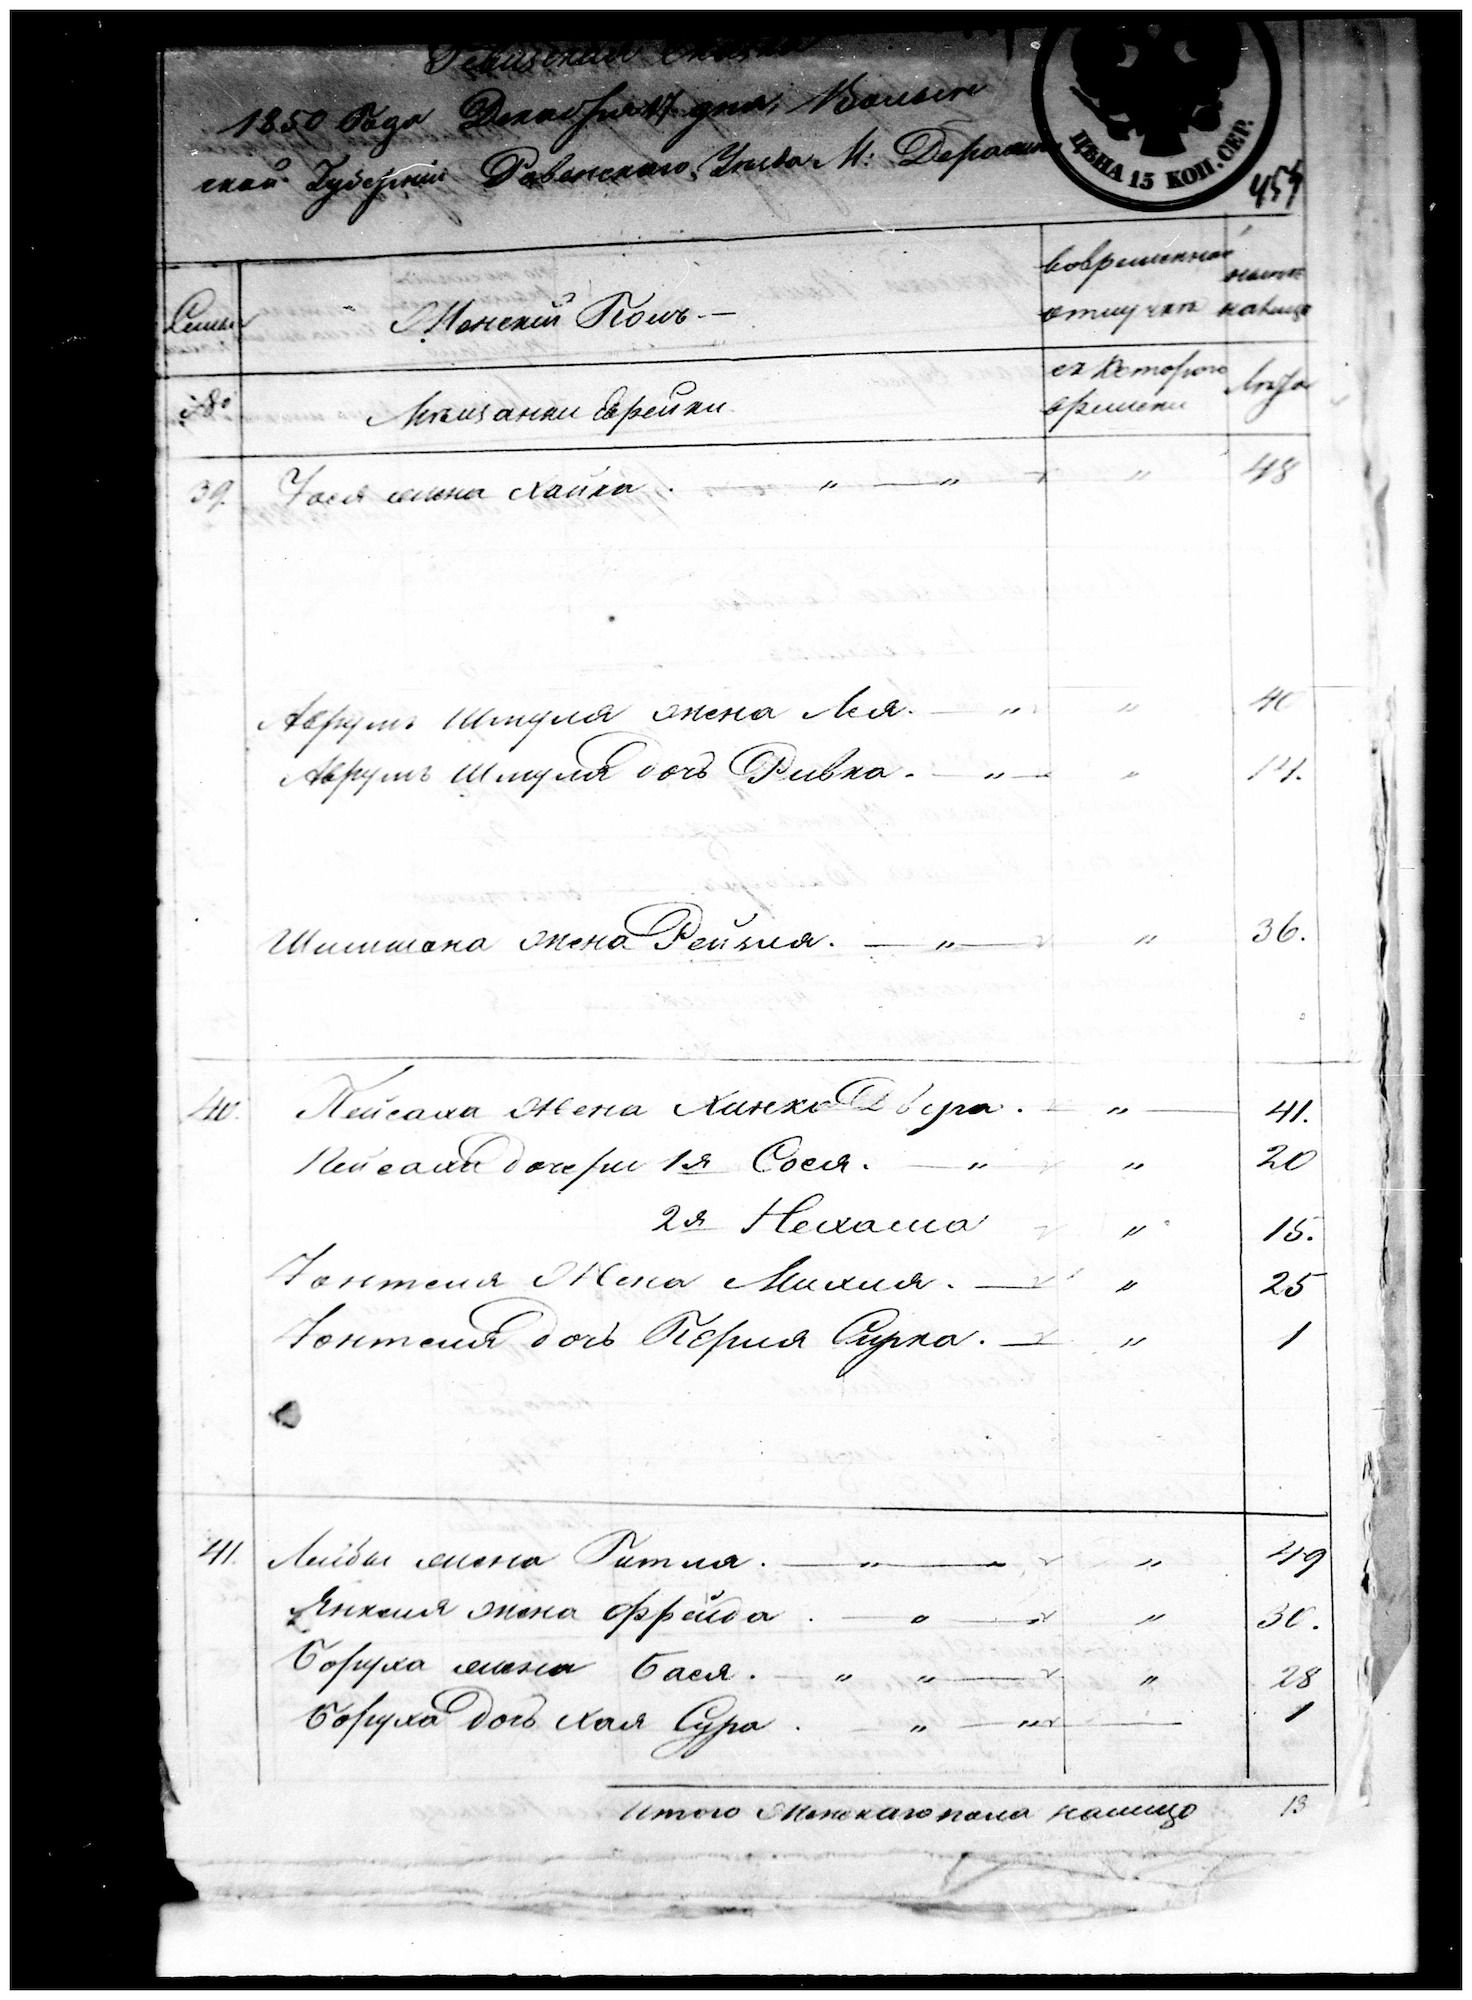 Ревизская сказка
1850 Года Декабря 17 дня, Волын
ской Губерніи Ровенскаго Уезда М: Деражни
ЦѢНА 15 КОП. СЕР.
Семьи
Женскій Полъ. —
вовременной отлучке
ныне налицо
№
Мещанки Еврейки
съ Котораго времени
Лета
39. Іося жена Хайка. — „ — „ „ 48
Аврумъ Шмуля жена Лея. — „ „ 40
Аврумъ Шмуля дочь Ривка. — „ — „ 14.
Шимшона жена Рейзля. — „ — „ 36.
40. Пейсаха Жена Хинка Двера. „ — 41.
Пейсаха дочери 1я Сося. — „ „ 20
2я Нехама „ 15.
Іонтеля Жена Михля. — „ 25
Іонтеля дочь Перля Сурка. — „ 1
41. Лейбы жена Гитля. — „ — „ 49
Янкеля жена Фрейда. — „ — „ 30.
Боруха жена Бася. — „ „ — „ 28
Боруха дочь Хая Сура. — „ — „ — 1
Итого Женскаго пола налицо 13